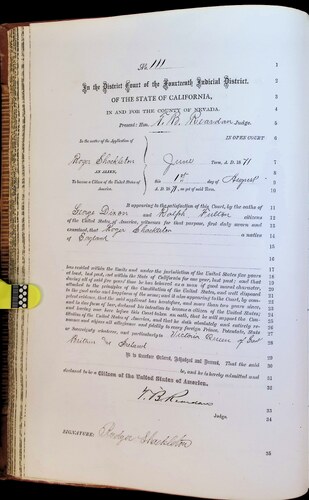 No. 111
In the District Court of the Fourteenth Judicial District,
OF THE STATE OF CALIFORNIA,
IN AND FOR THE COUNTY OF NEVADA.
Present: Hon. T. B. Reardan Judge.
IN OPEN COURT
In the matter of the Application of
Roger Shackleton
AN ALIEN,
To become a Citizen of the United States of
America.
June Term, A. D. 1871
1st day of August
A. D. 1871, as yet of said Term.
It appearing to the satisfaction of this Court, by the oaths of
George Dixon and Ralph Fulton citizens
of the United States of America, witnesses for that purpose, first duly sworn and
examined, that Roger Shackleton a native
of England
has resided within the limits and under the jurisdiction of the United States five years
at least, last past, and within the State of California for one year, last past; and that
during all of said five years' time he has behaved as a man of good moral character,
attached to the principles of the Constitution of the United States, and well disposed
to the good order and happiness of the same; and it also appearing to the Court, by
competent evidence, that the said applicant has heretofore, and more than two years since,
and in due form of law, declared his intention to become a citizen of the United States;
and having now here before this Court taken an oath, that he will support the Constitution
of the United States of America, and that he doth absolutely and entirely renounce
and abjure all allegiance and fidelity to every foreign Prince, Potentate, State
or Sovereignty whatever, and particularly to Victoria Queen of Great
Britain and Ireland
It is therefore Ordered, Adjudged and Decreed, That the said
be, and he is hereby admitted and
declared to be a Citizen of the United States of America.
T. B. Reardan
Judge.
SIGNATURE: Rodger Shackleton